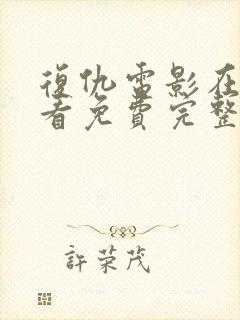 復仇雷影在
看免費完整
許荣茂